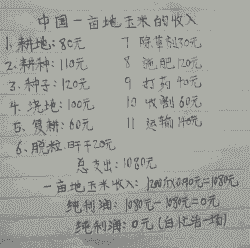 中国一亩地玉米的收入
1. 耕地: 80元 7 除草剂30元
2. 耕种: 110元 8 施肥: 120元
3. 种子: 120元 9 打药 40元
4. 浇地: 100元 10 收割 60元
5. 复耕: 60元 11 运输 140元
6. 脱粒 日干20元
总支出: 1080元
一亩地玉米收入: 1200斤x0.90元=1080元
纯利润: 1080元-1080元=0元
纯利润: 0元 (白忙活一场)